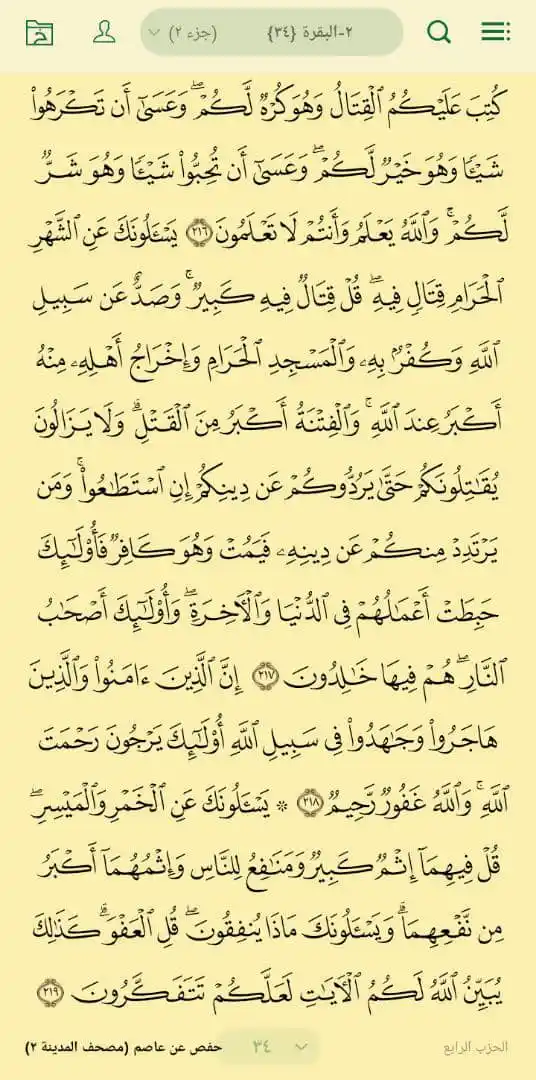 ٢-البقرة {٣٤} (جزء ٢)
كُتِبَ عَلَيْكُمُ ٱلْقِتَالُ وَهُوَ كُرْهٌ لَّكُمْ ۖ وَعَسَىٰٓ أَن تَكْرَهُوا۟
شَيْـًٔا وَهُوَ خَيْرٌ لَّكُمْ ۖ وَعَسَىٰٓ أَن تُحِبُّوا۟ شَيْـًٔا وَهُوَ شَرٌّ
لَّكُمْ ۚ وَٱللَّهُ يَعْلَمُ وَأَنتُمْ لَا تَعْلَمُونَ ٢١٦ يَسْـَٔلُونَكَ عَنِ ٱلشَّهْرِ
ٱلْحَرَامِ قِتَالٍ فِيهِ ۖ قُلْ قِتَالٌ فِيهِ كَبِيرٌ ۚ وَصَدٌّ عَن سَبِيلِ
ٱللَّهِ وَكُفْرٌۢ بِهِۦ وَٱلْمَسْجِدِ ٱلْحَرَامِ وَإِخْرَاجُ أَهْلِهِۦ مِنْهُ
أَكْبَرُ عِندَ ٱللَّهِ ۚ وَٱلْفِتْنَةُ أَكْبَرُ مِنَ ٱلْقَتْلِ ۗ وَلَا يَزَالُونَ
يُقَـٰتِلُونَكُمْ حَتَّىٰ يَرُدُّوكُمْ عَن دِينِكُمْ إِنِ ٱسْتَطَـٰعُوا۟ ۚ وَمَن
يَرْتَدِدْ مِنكُمْ عَن دِينِهِۦ فَيَمُتْ وَهُوَ كَافِرٌ فَأُو۟لَـٰٓئِكَ
حَبِطَتْ أَعْمَـٰلُهُمْ فِى ٱلدُّنْيَا وَٱلْـَٔاخِرَةِ ۖ وَأُو۟لَـٰٓئِكَ أَصْحَـٰبُ
ٱلنَّارِ ۖ هُمْ فِيهَا خَـٰلِدُونَ ٢١٧ إِنَّ ٱلَّذِينَ ءَامَنُوا۟ وَٱلَّذِينَ
هَاجَرُوا۟ وَجَـٰهَدُوا۟ فِى سَبِيلِ ٱللَّهِ أُو۟لَـٰٓئِكَ يَرْجُونَ رَحْمَتَ
ٱللَّهِ ۚ وَٱللَّهُ غَفُورٌ رَّحِيمٌ ٢١٨ * يَسْـَٔلُونَكَ عَنِ ٱلْخَمْرِ وَٱلْمَيْسِرِ ۖ
قُلْ فِيهِمَآ إِثْمٌ كَبِيرٌ وَمَنَـٰفِعُ لِلنَّاسِ وَإِثْمُهُمَآ أَكْبَرُ
مِن نَّفْعِهِمَا ۗ وَيَسْـَٔلُونَكَ مَاذَا يُنفِقُونَ ۖ قُلِ ٱلْعَفْوَ ۗ كَذَٰلِكَ
يُبَيِّنُ ٱللَّهُ لَكُمُ ٱلْـَٔايَـٰتِ لَعَلَّكُمْ تَتَفَكَّرُونَ ٢١٩
الحزب الرابع ٣٤ حفص عن عاصم (مصحف المدينة ٢)